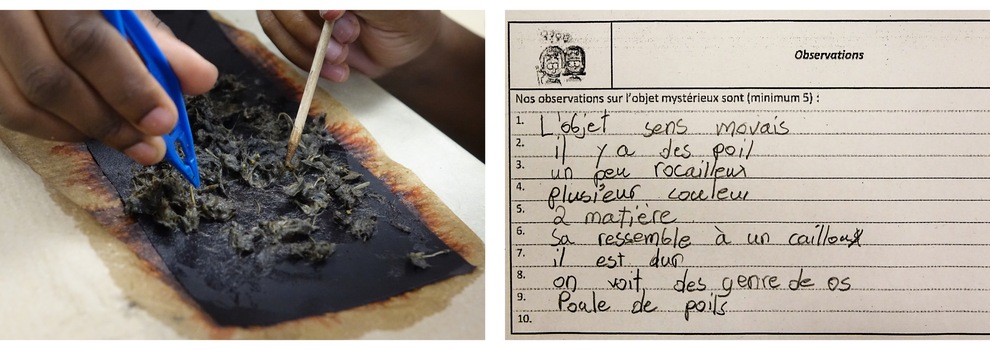 Observations
Nos observations sur l'objet mystérieux sont (minimum 5) :
1. L'objet sens movais
2. il y a des poil
3. un peu rocailleux
4. plusieur couleur
5. 2 matière
6. Sa ressemble à un caillou
7. il est dur
8. on voit des genre de os
9. Poule de poils
10.